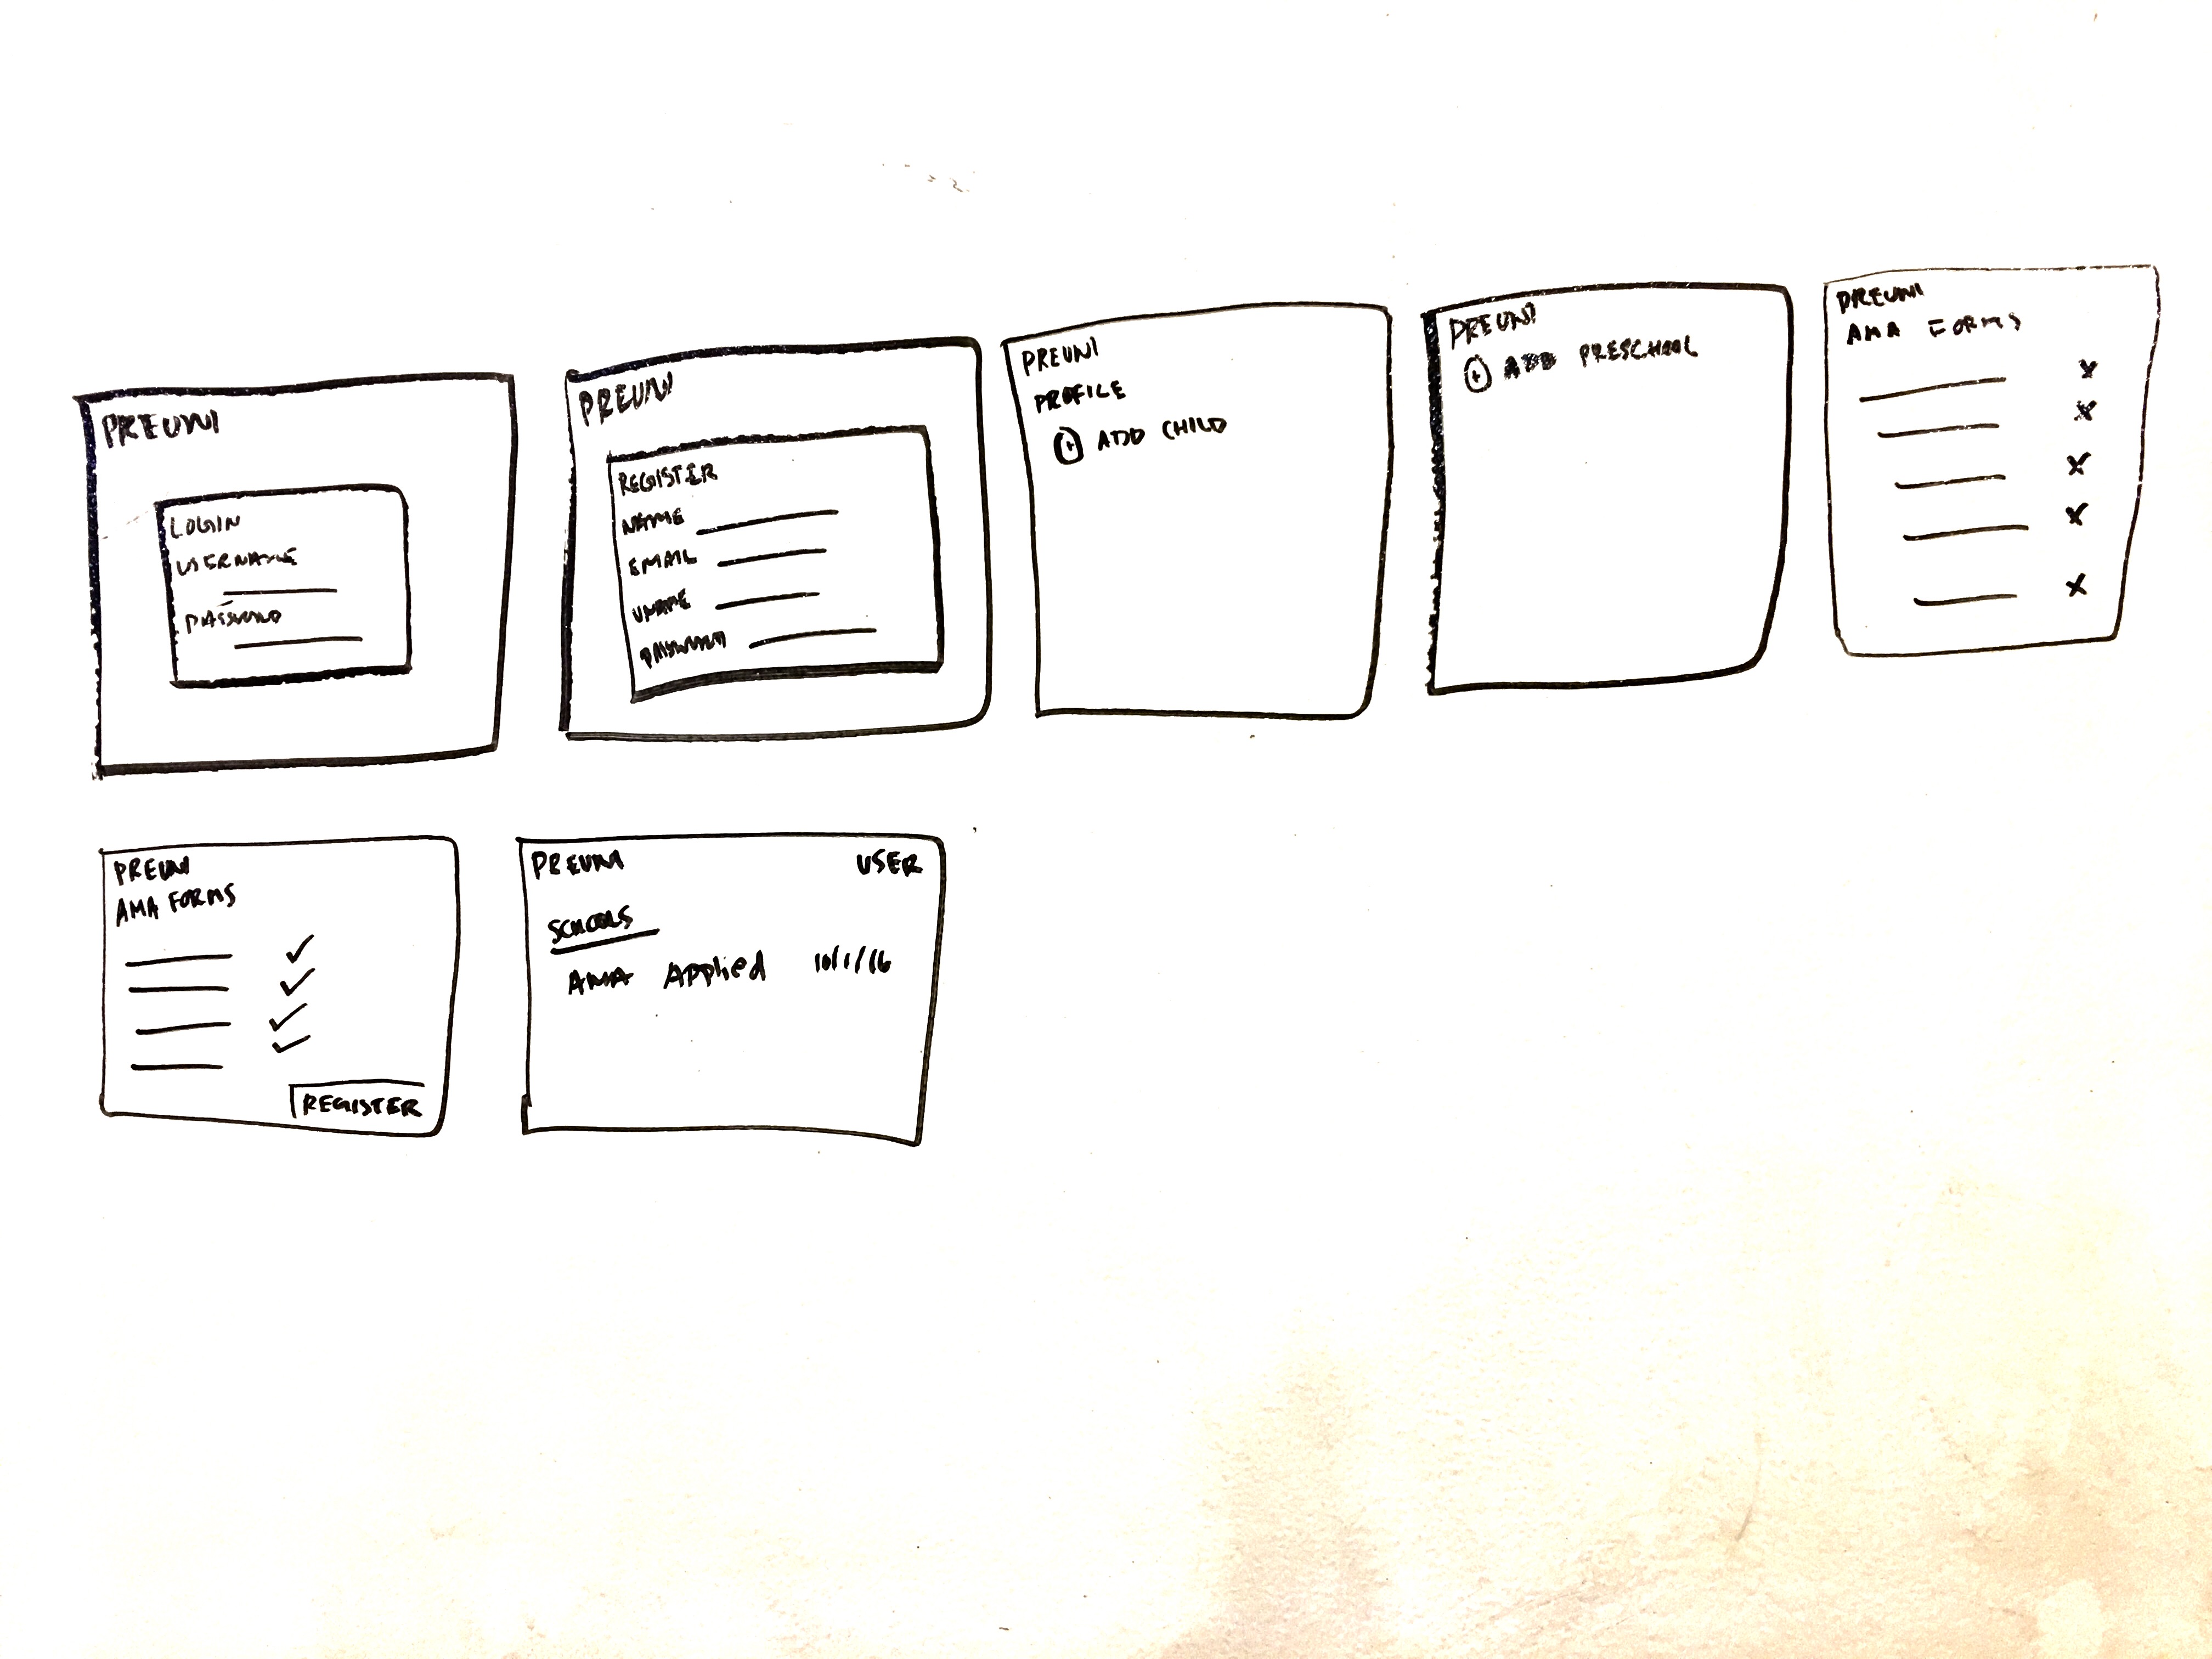 PREUNI
LOGIN
USERNAME
PASSWORD
PREUNI
REGISTER
NAME
EMAIL
UNAME
PASSWORD
PREUNI
PROFILE
+ ADD CHILD
PREUNI
+ ADD PRESCHOOL
PREUNI
AMA FORMS
X
X
X
X
X
PREUNI
AMA FORMS
✓
✓
✓
✓
REGISTER
PREUNI USER
SCHOOLS
AMA Applied 10/1/16